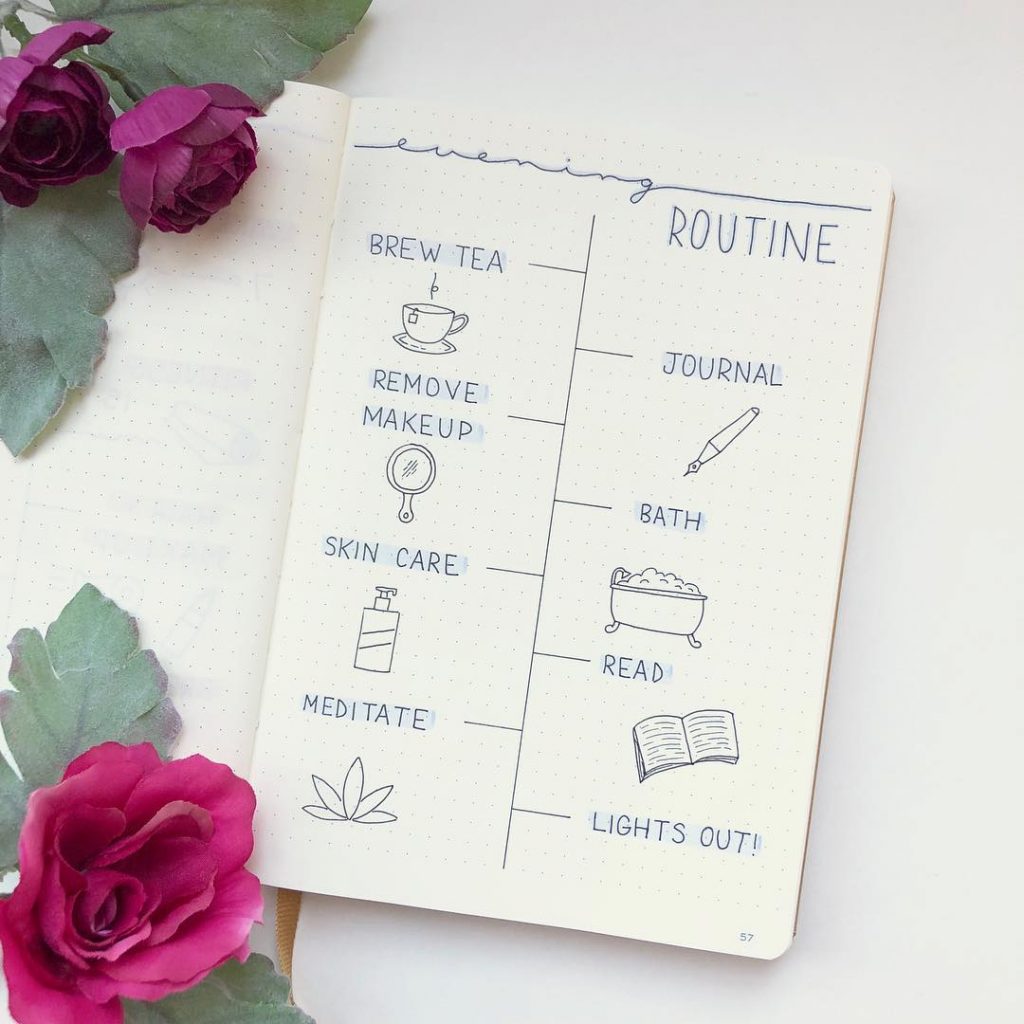 evening
ROUTINE
BREW TEA
JOURNAL
REMOVE
MAKEUP
BATH
SKIN CARE
READ
MEDITATE
LIGHTS OUT!
57